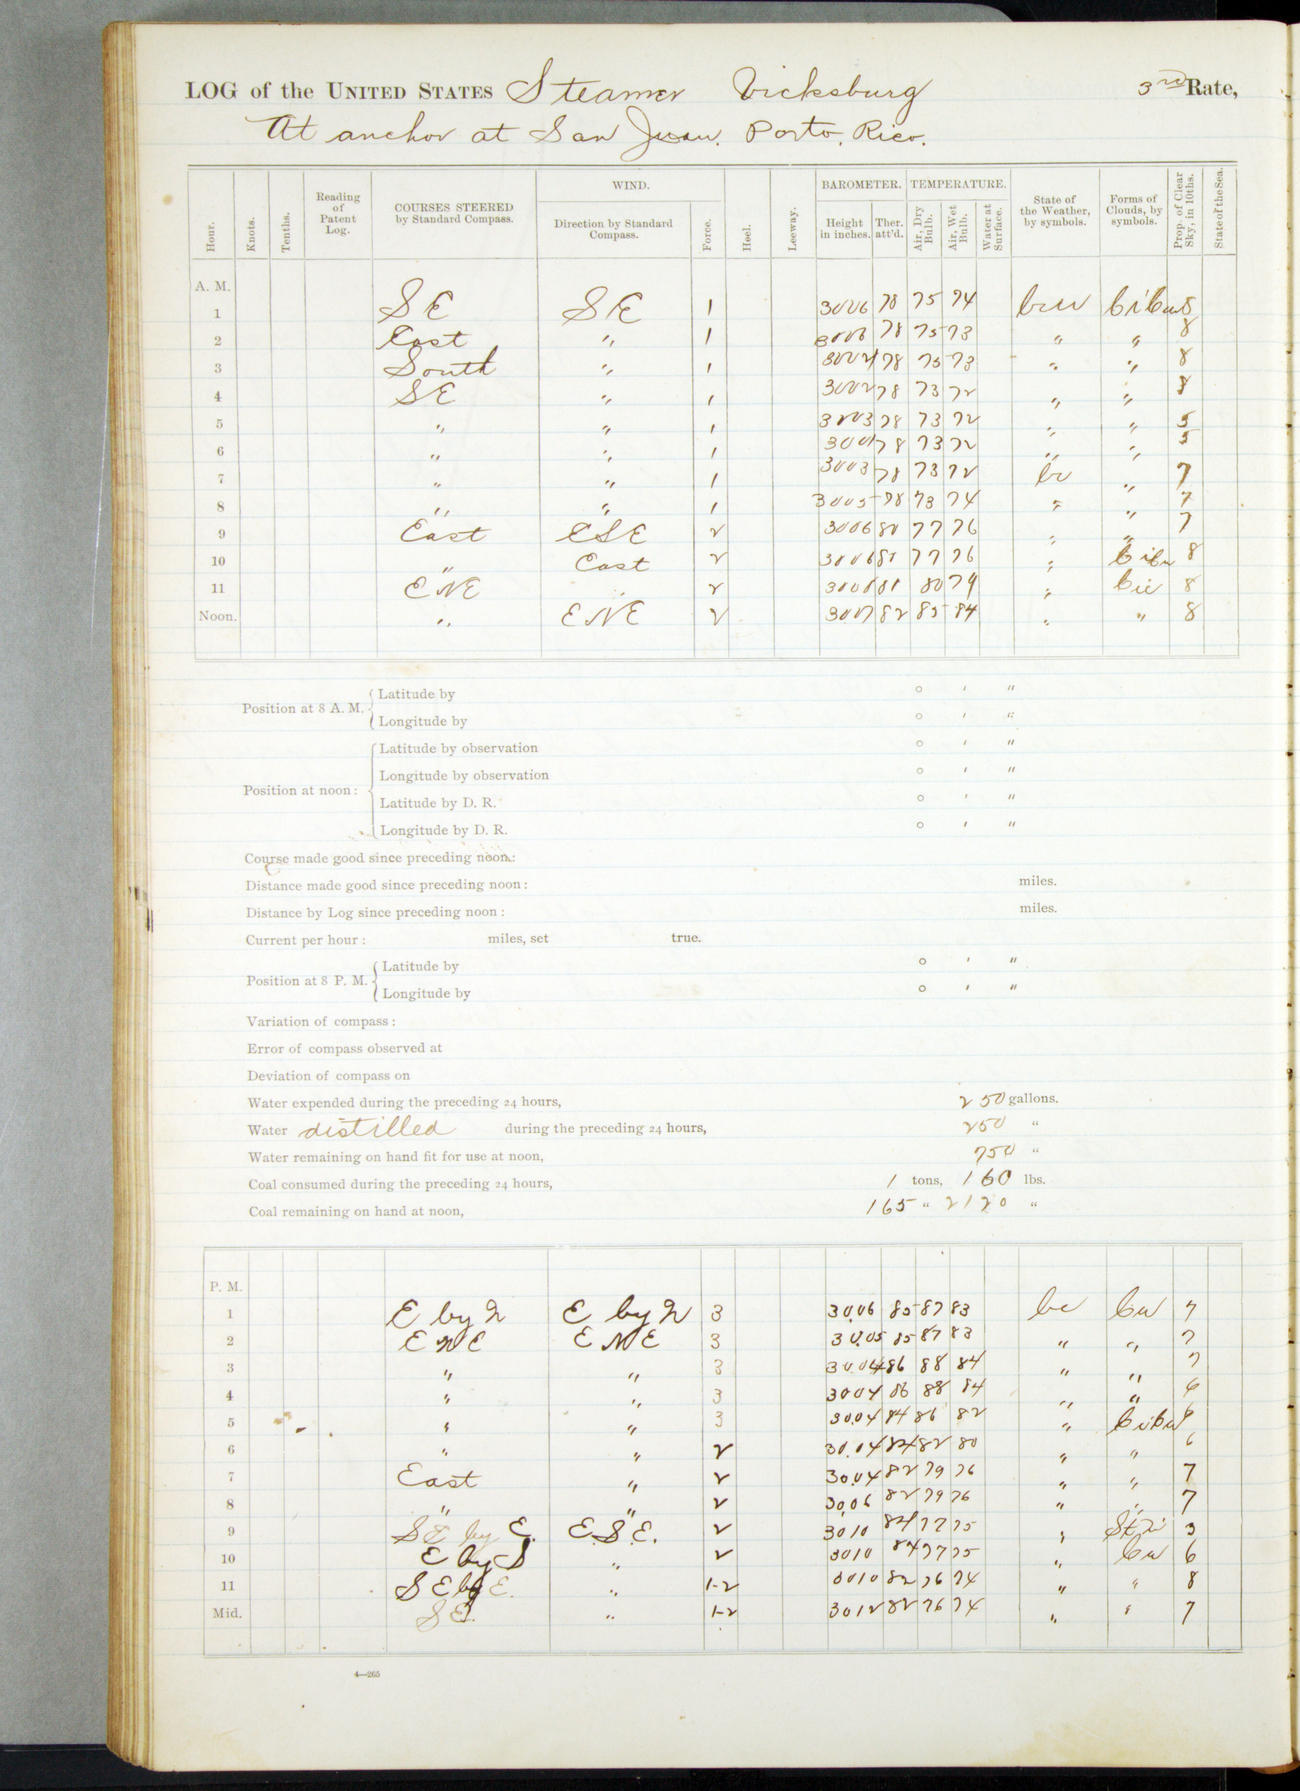 LOG of the UNITED STATES Steamer Vicksburg 3rd Rate,
At anchor at San Juan. Porto. Rico.
Hour. Knots. Tenths. Reading of Patent Log. COURSES STEERED by Standard Compass. WIND. Direction by Standard Compass. Force. Heel. Leeway. BAROMETER. Height in inches. Ther. att'd. TEMPERATURE. Air, Dry Bulb. Air, Wet Bulb. Water at Surface. State of the Weather, by symbols. Forms of Clouds, by symbols. Prop. of Clear Sky, in 10ths. State of the Sea.
A. M.
1 SE SE 1 3006 78 75 74 bcu CiCu 5
2 East " 1 3006 78 75 73 " " 8
3 South " 1 3002 78 75 73 " " 8
4 SE " 1 3002 78 73 72 " " 8
5 " " 1 3003 78 73 72 " " 5
6 " " 1 3001 78 73 72 " " 5
7 " " 1 3003 78 73 72 bc " 7
8 " " 1 3005 78 73 74 " " 7
9 East ESE 2 3006 80 77 76 " " 7
10 " East 2 3006 81 77 76 " CiCu 8
11 ENE " 2 3006 81 80 79 " Cic 8
Noon. " ENE 2 3007 82 85 84 " " 8
Position at 8 A. M. Latitude by ° ' "
Longitude by ° ' "
Position at noon: Latitude by observation ° ' "
Longitude by observation ° ' "
Latitude by D. R. ° ' "
Longitude by D. R. ° ' "
Course made good since preceding noon:
Distance made good since preceding noon: miles.
Distance by Log since preceding noon: miles.
Current per hour: miles, set true.
Position at 8 P. M. Latitude by ° ' "
Longitude by ° ' "
Variation of compass:
Error of compass observed at
Deviation of compass on
Water expended during the preceding 24 hours, 250 gallons.
Water distilled during the preceding 24 hours, 250 "
Water remaining on hand fit for use at noon, 750 "
Coal consumed during the preceding 24 hours, 1 tons, 160 lbs.
Coal remaining on hand at noon, 165 " 2120 "
P. M.
1 E by N E by N 3 30.06 85 87 83 bc Cu 7
2 ENE ENE 3 30.05 85 87 83 " " 7
3 " " 3 30.04 86 88 84 " " 7
4 " " 3 3004 86 88 84 " " 6
5 " " 3 30.04 84 86 82 " CiCu 6
6 " " 2 30.04 84 82 80 " " 6
7 East " 2 30.04 82 79 76 " " 7
8 " " 2 30.06 82 79 76 " " 7
9 SE by E. E.S.E. 2 3010 84 77 75 " 3
10 E by S " 2 3010 84 77 75 " Cu 6
11 SE by E. " 1-2 3010 82 76 74 " " 8
Mid. SE. " 1-2 3012 82 76 74 " " 7
4—265